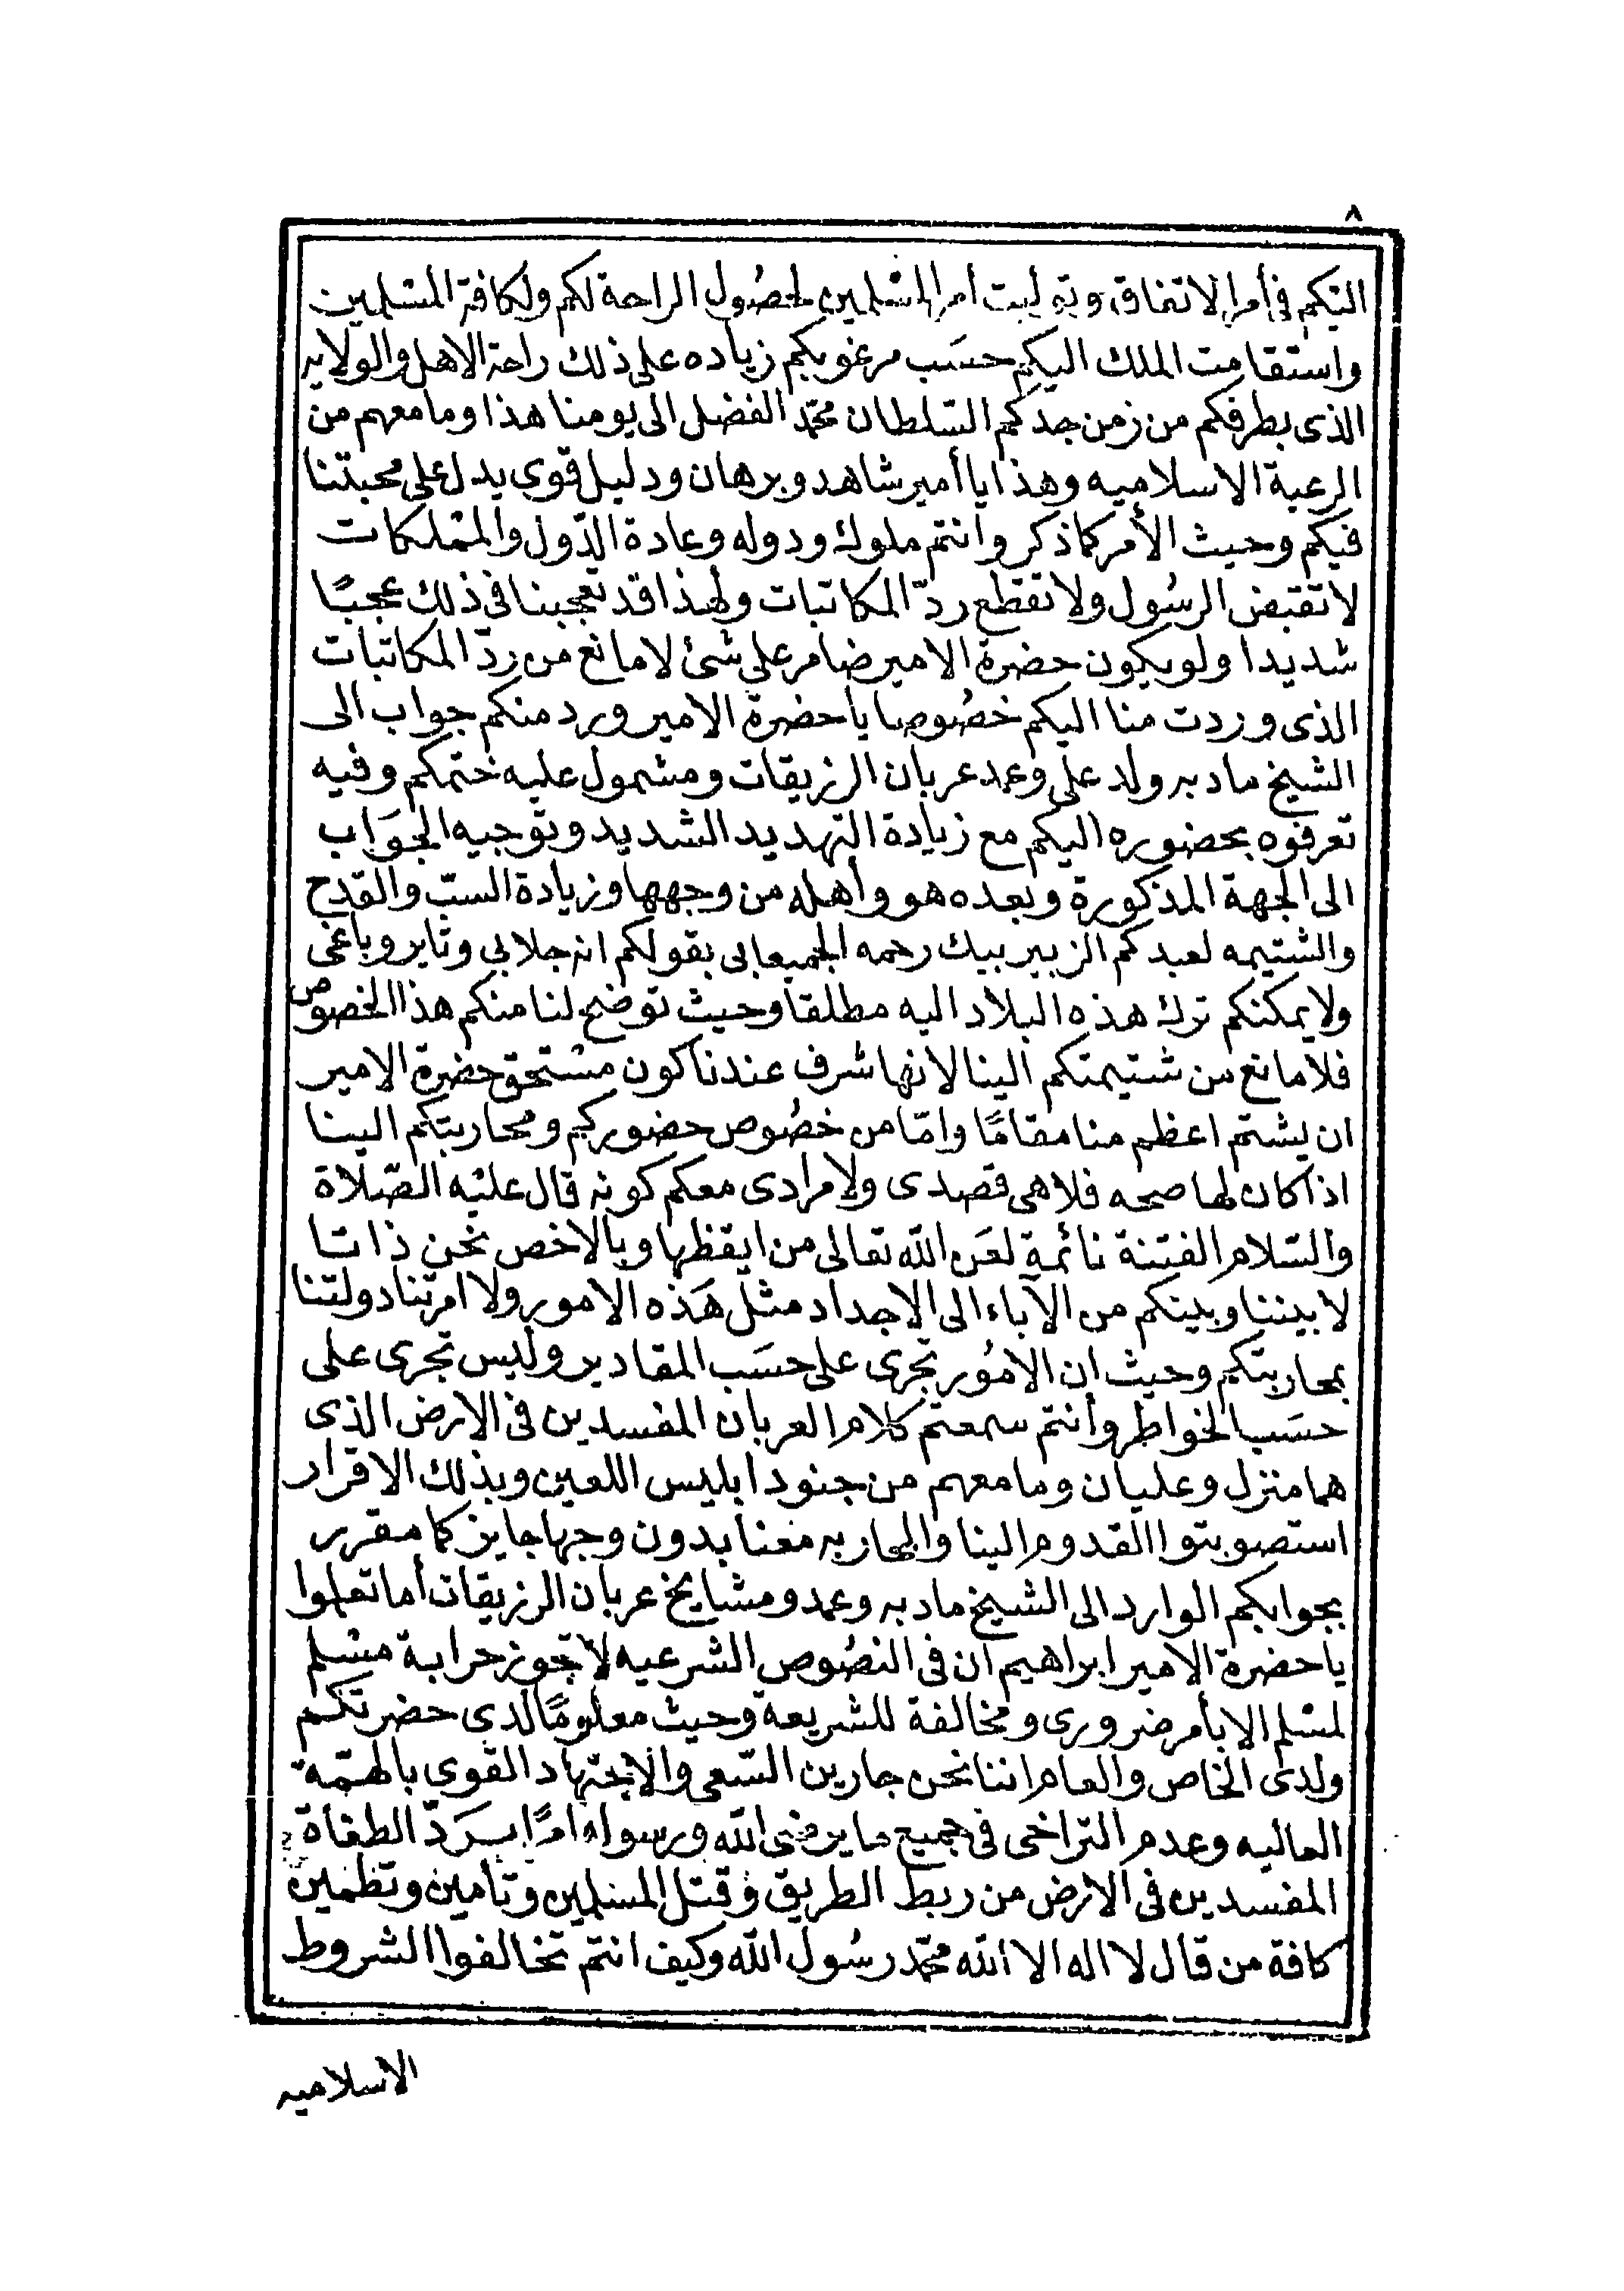 ٨
اليكم في أمر الاتفاق وتوليت أمر المسلمين لحصُول الراحة لكم ولكافة المسلمين
واستقامت الملك اليكم حسَب مرغوبكم زياده على ذلك راحة الاهل والولايه
الذى بطرفكم من زمن جدكم السّلطان محمّد الفضل الى يومنا هذا وما معهم من
الرعية الاسلاميه وهذا يا أمير شاهد وبرهان ودليل قوى يدل على محبتنا
فيكم وحيث الأمر كما ذكر وانتم ملوك ودوله وعادة الدّول والممْلكات
لا تقبض الرسُول ولا تقطع ردّ المكاتبات ولهذا قد تعجبنا فى ذلك عجبًا
شديدا ولو يكون حضرة الامير ضامر على شئ لا مانع من ردّ المكاتبات
الذى وردت منا اليكم خصُوصا يا حضرة الامير ورد منكم جواب الى
الشيخ مادبه ولد على وعمد عربان الرزيقات ومشمول عليه ختمكم وفيه
تعرفوه بحضوره اليكم مع زيادة التهديد الشديد وتوجيه الجوَاب
الى الجهة المذكورة وبعده هو وأهله من وجهها وزيادة السبّ والقدح
والشتيمه لعبدكم الزبير بيك رحمه الجميعابى بقولكم انه جلابي وتاير وباغى
ولا يمكنكم ترك هذه البلاد اليه مطلقا وحيث توضح لنا منكم هذا الخصوص
فلا مانع من شتيمتكم الينا لانها شرف عندنا كون مسْتحق حضرة الامير
ان يشتم اعظم منا مقامًا وامّا من خصُوص حضوركم ومحاربتكم الينا
اذا كان لها صحه فلا هى قصدى ولا مرادى معكم كونه قال عليْه الصّلاة
والسّلام الفتنة نائمة لعَن الله تعالى من ايقظها وبالاخص نحن ذاتا
لا بيننا وبينكم من الآباء الى الاجداد مثل هَذه الامور ولا امرتنا دولتنا
بمحاربتكم وحيث ان الامُور تجرى على حسَب المقادير وليس تجرى على
حسَب الخواطر وأنتم سمعتم كلام العربان المفسدين فى الارض الذى
هما منزل وعليان وما معهم من جنود ابليس اللعين وبذلك الاقرار
استصوبتوا القدوم الينا والمحاربه معنا بدون وجها جايز كما مقرر
بجوابكم الوارد الى الشيخ مادبه وعمد ومشايخ عربان الرزيقات أما تعلموا
يا حضرة الامير ابراهيم ان فى النصُوص الشرعيه لا تجوز حرابة مسْلم
لمسْلم الا بأمر ضرورى ومخالفة للشريعة وحيث معلومًا لدى حضرتكم
ولدى الخاص والعام اننا نحن جارين السّعى والاجتهاد القوى بالهمّة
العاليه وعدم التراخى فى جميع ما يرضى الله ورسوله امرًا بسَردّ الطغاة
المفسدين فى الارض من ربط الطريق وقتل المسلمين وتامين وتطمين
كافة من قال لا اله الا الله محمّد رسُول الله وكيف انتم تخالفوا الشروط
الاسلاميه